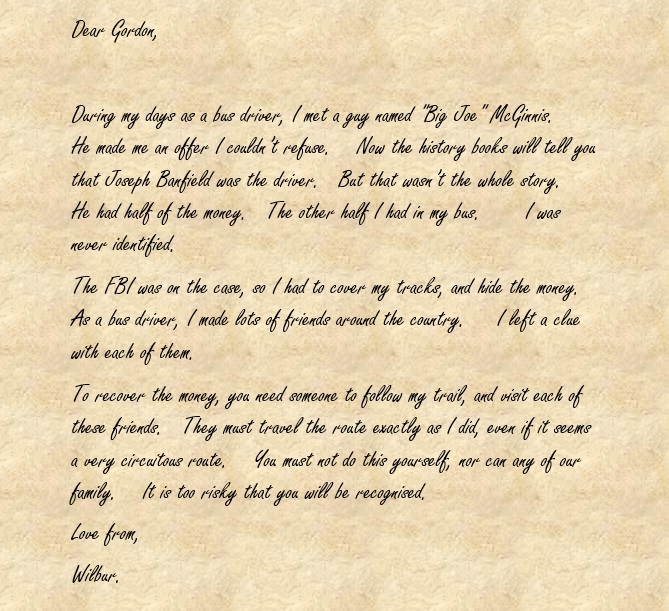 Dear Gordon,
During my days as a bus driver, I met a guy named "Big Joe" McGinnis.
He made me an offer I couldn't refuse. Now the history books will tell you
that Joseph Banfield was the driver. But that wasn't the whole story.
He had half of the money. The other half I had in my bus. I was
never identified.
The FBI was on the case, so I had to cover my tracks, and hide the money.
As a bus driver, I made lots of friends around the country. I left a clue
with each of them.
To recover the money, you need someone to follow my trail, and visit each of
these friends. They must travel the route exactly as I did, even if it seems
a very circuitous route. You must not do this yourself, nor can any of our
family. It is too risky that you will be recognised.
Love from,
Wilbur.